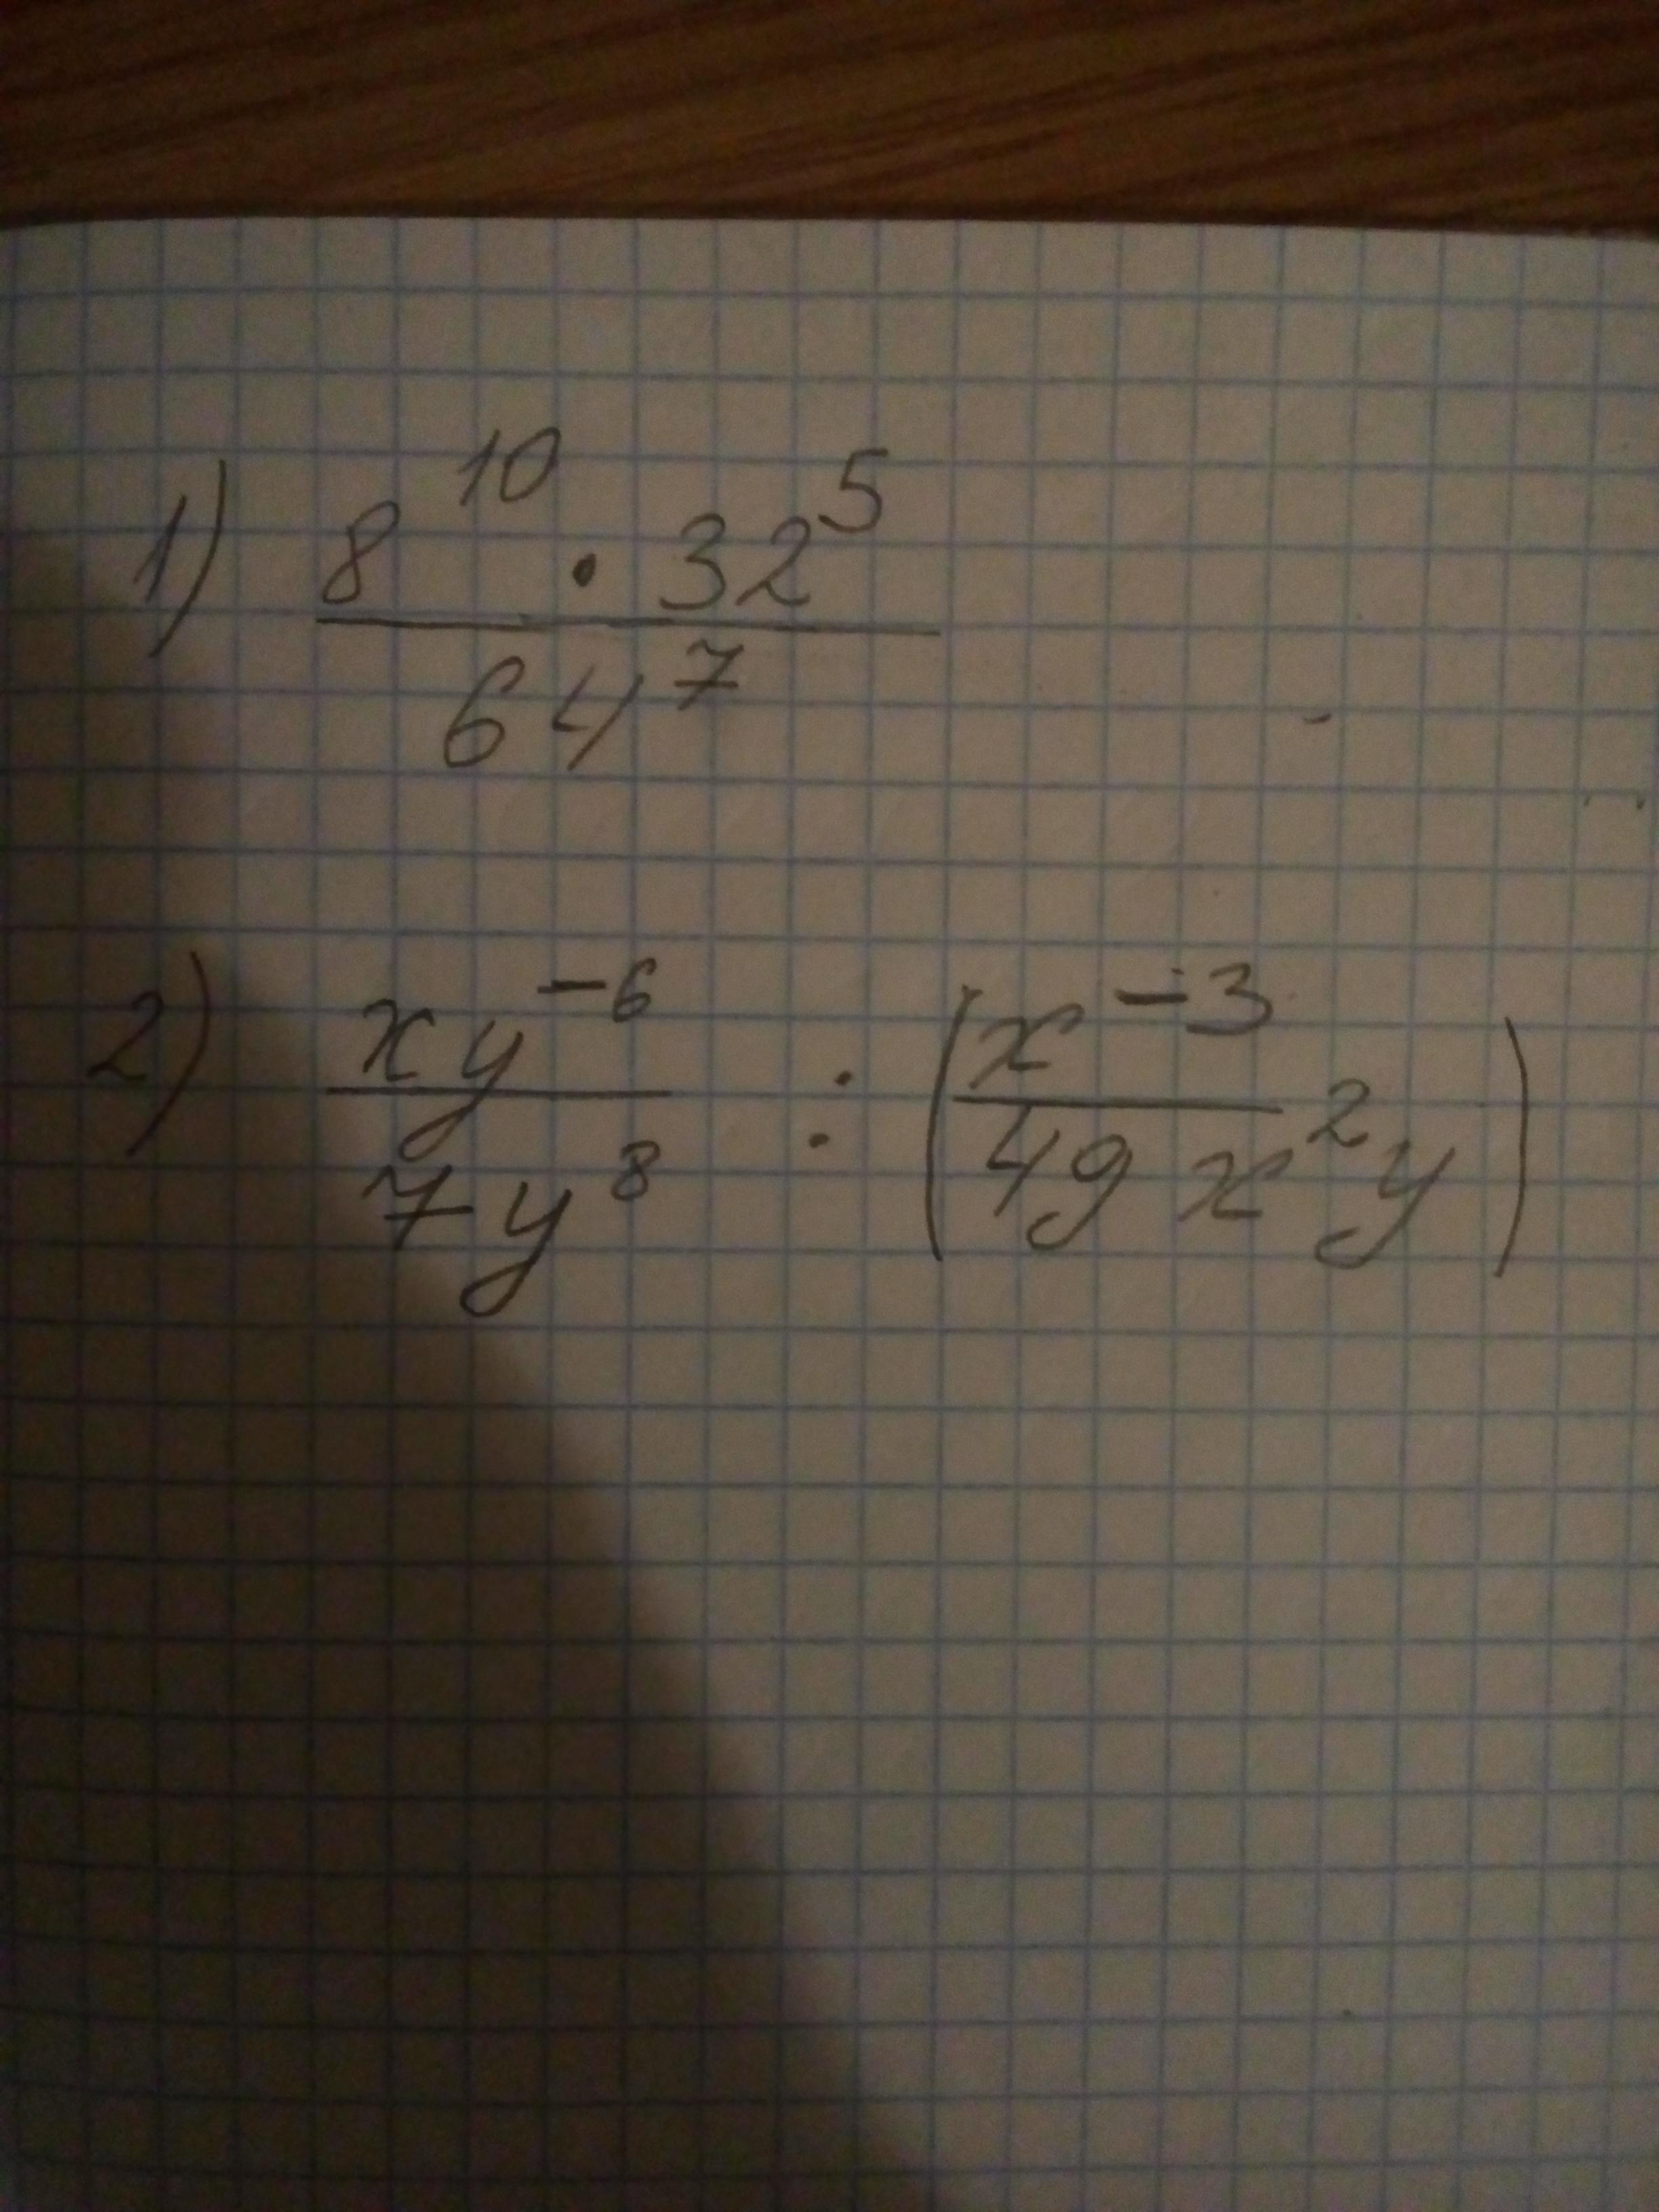 1) 8^10 · 32^5
64^7
2) xy^-6 : (x^-3
7y^8 49x^2y)